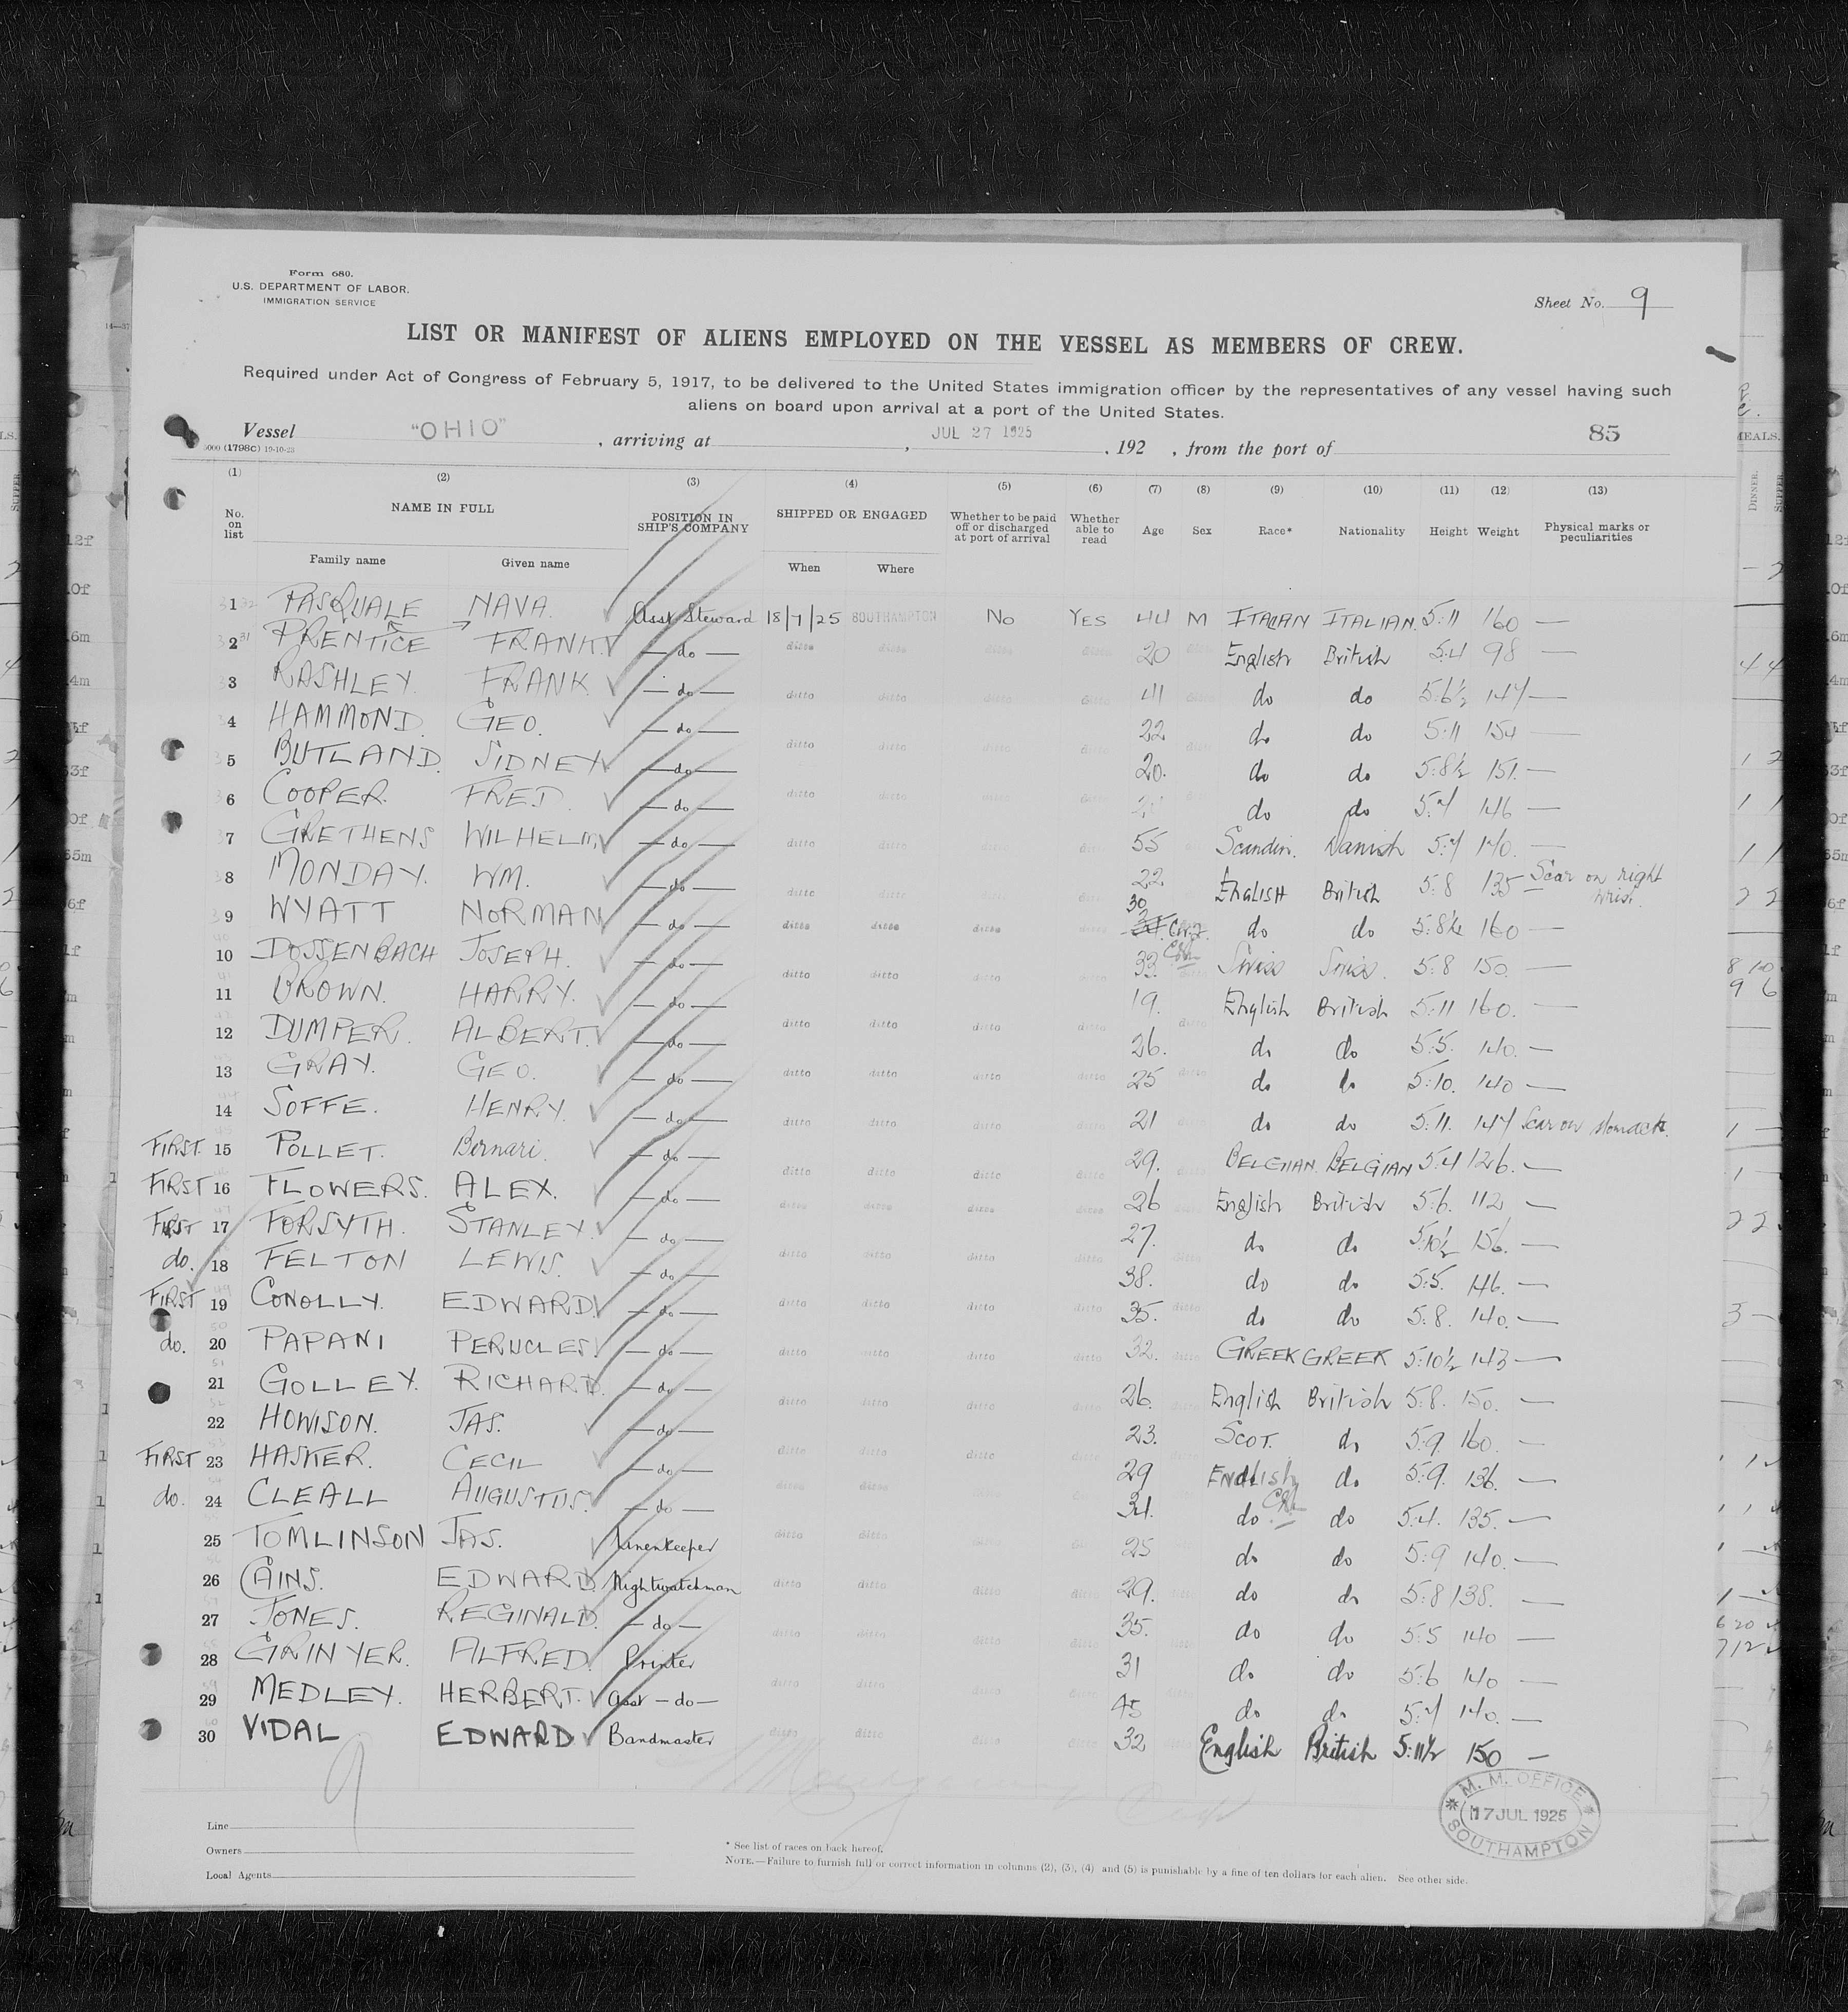 Form 680.
U.S. DEPARTMENT OF LABOR.
IMMIGRATION SERVICE
Sheet No. 9
LIST OR MANIFEST OF ALIENS EMPLOYED ON THE VESSEL AS MEMBERS OF CREW.
Required under Act of Congress of February 5, 1917, to be delivered to the United States immigration officer by the representatives of any vessel having such
aliens on board upon arrival at a port of the United States.
Vessel "OHIO", arriving at , JUL 27 1925, 192 , from the port of 85
5000 (1798C) 19-10-23
(1) (2) (3) (4) (5) (6) (7) (8) (9) (10) (11) (12) (13)
No. on list NAME IN FULL POSITION IN SHIP'S COMPANY SHIPPED OR ENGAGED Whether to be paid off or discharged at port of arrival Whether able to read Age Sex Race* Nationality Height Weight Physical marks or peculiarities
Family name Given name When Where
1 PASQUALE NAVA. Asst Steward 18/7/25 SOUTHAMPTON No YES 44 M ITALIAN ITALIAN. 5:11 160 —
2 PRENTICE FRANK. — do — ditto ditto ditto ditto 20 ditto English British 5:4 98 —
3 RASHLEY. FRANK — do — ditto ditto ditto ditto 41 ditto do do 5:6½ 147 —
4 HAMMOND. GEO. — do — ditto ditto ditto ditto 22 ditto do do 5:11 154 —
5 BUTLAND. SIDNEY — do — 20. do do 5:8½ 151. —
6 COOPER. FRED. — do — ditto ditto ditto ditto ditto do do 5:7 146 —
7 GRETHENS WILHELM. — do — ditto ditto ditto ditto 55 ditto Scandin. Danish 5:7 140. —
8 MONDAY. WM. — do — ditto ditto ditto ditto 22. ditto ENGLISH British 5:8 135 Scar on right wrist.
9 WYATT NORMAN — do — ditto ditto ditto ditto 30 do do 5:8½ 160 —
10 DOSSENBACH JOSEPH. — do — ditto ditto ditto ditto 33. ditto Swiss Swiss. 5:8 150. —
11 BROWN. HARRY. — do — 19. English British 5:11 160. —
12 DUMPER. ALBERT. — do — ditto ditto ditto ditto 26. ditto do do 5:5. 140. —
13 GRAY. GEO. — do — ditto ditto ditto ditto 25 ditto do do 5:10. 140 —
14 SOFFE. HENRY. — do — ditto ditto ditto ditto 21 ditto do do 5:11. 147 Scar on stomach.
FIRST. 15 POLLET. Bernari. — do — 29. BELGIAN. BELGIAN 5:4 126. —
FIRST 16 FLOWERS. ALEX. — do — ditto ditto ditto ditto 26 English British 5:6. 112 —
FIRST 17 FORSYTH. STANLEY. — do — ditto ditto ditto ditto 27. do do 5:10½ 156. —
do. 18 FELTON LEWIS. — do — ditto ditto ditto ditto 38. do do 5:5. 146. —
FIRST 19 CONOLLY. EDWARD — do — ditto ditto ditto ditto 35. ditto do do 5:8. 140. —
do. 20 PAPANI PERUCLES. — do — ditto ditto ditto ditto 32. ditto GREEK GREEK 5:10½ 143 —
21 GOLLEY. RICHARD. — do — 26. English British 5:8. 150. —
22 HOWISON. JAS. — do — ditto ditto ditto ditto 23. SCOT. do 5:9. 160. —
FIRST 23 HASKER. CECIL — do — ditto ditto ditto ditto 29 ENGLISH do 5:9. 136. —
do. 24 CLEALL AUGUSTUS. — do — ditto ditto 34. do do 5:4. 135. —
25 TOMLINSON JAS. Linenkeeper ditto ditto ditto 25 do do 5:9 140. —
26 CAINS. EDWARD. Nightwatchman ditto ditto ditto ditto 29. do do 5:8 138. —
27 JONES. REGINALD. — do — 35. do do 5:5 140 —
28 GRINYER. ALFRED. Printer ditto ditto ditto ditto 31 do do 5:6 140 —
29 MEDLEY. HERBERT. Asst — do — ditto ditto 45 do do 5:7 140. —
30 VIDAL EDWARD Bandmaster ditto ditto ditto ditto 32 English British 5:11½ 150 —
9
M. M. OFFICE
17 JUL 1925
SOUTHAMPTON
Line
Owners
Local Agents
* See list of races on back hereof.
NOTE.—Failure to furnish full or correct information in columns (2), (3), (4) and (5) is punishable by a fine of ten dollars for each alien. See other side.